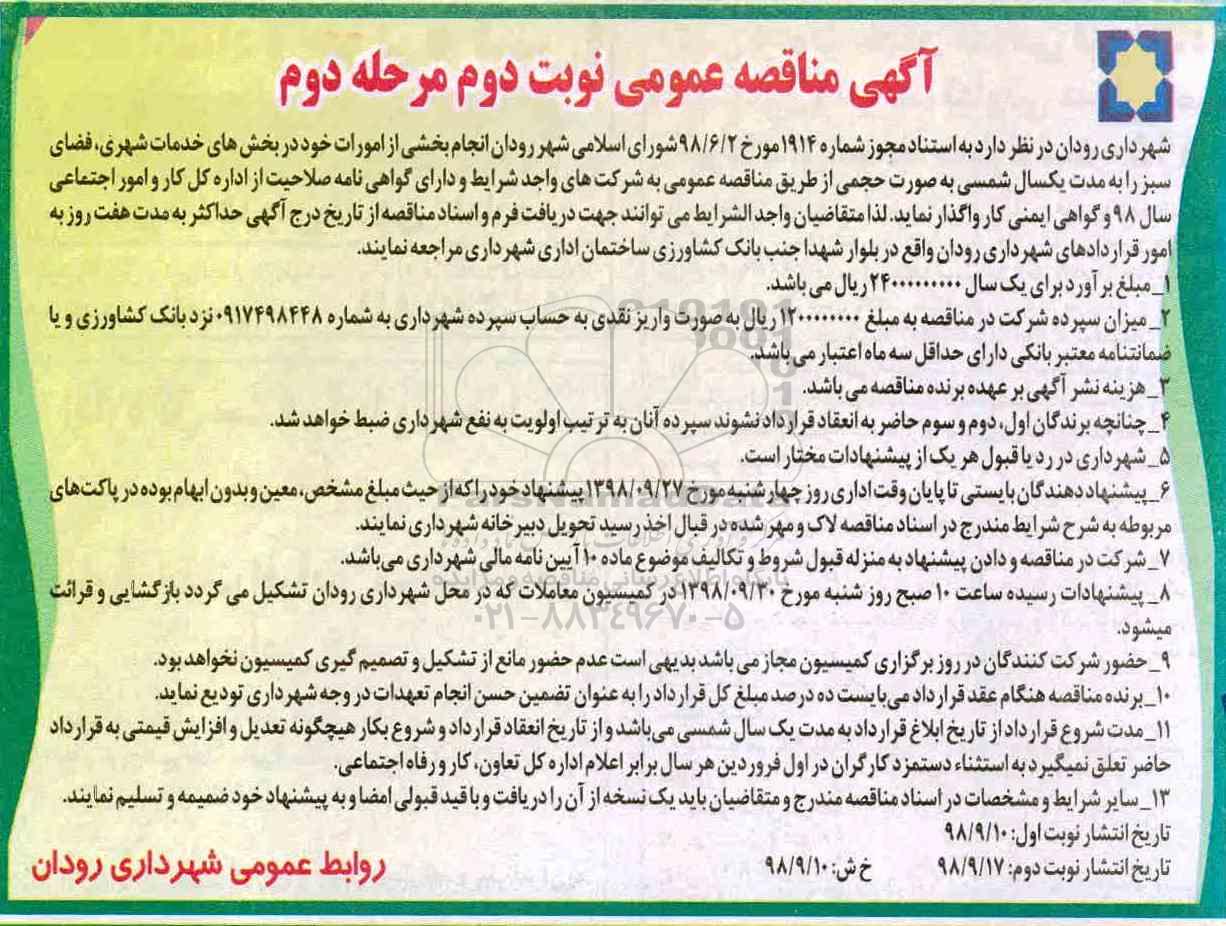 آگهی مناقصه عمومی نوبت دوم مرحله دوم
شهرداری رودان در نظر دارد به استناد مجوز شماره ۱۹۱۴ مورخ ۹۸/۶/۲ شورای اسلامی شهر رودان انجام بخشی از امورات خود در بخش های خدمات شهری، فضای
سبز را به مدت یکسال شمسی به صورت حجمی از طریق مناقصه عمومی به شرکت های واجد شرایط و دارای گواهی نامه صلاحیت از اداره کل کار و امور اجتماعی
سال ۹۸ و گواهی ایمنی کار واگذار نماید. لذا متقاضیان واجد الشرایط می توانند جهت دریافت فرم و اسناد مناقصه از تاریخ درج آگهی حداکثر به مدت هفت روز به
امور قراردادهای شهرداری رودان واقع در بلوار شهدا جنب بانک کشاورزی ساختمان اداری شهرداری مراجعه نمایند.
۱_ مبلغ برآورد برای یک سال ۲۴۰۰۰۰۰۰۰۰۰ ریال می باشد.
۲_ میزان سپرده شرکت در مناقصه به مبلغ ۱۲۰۰۰۰۰۰۰۰ ریال به صورت واریز نقدی به حساب سپرده شهرداری به شماره ۰۹۱۷۴۹۸۴۴۸ نزد بانک کشاورزی و یا
ضمانتنامه معتبر بانکی دارای حداقل سه ماه اعتبار می باشد.
۳_ هزینه نشر آگهی بر عهده برنده مناقصه می باشد.
۴_ چنانچه برندگان اول، دوم و سوم حاضر به انعقاد قرارداد نشوند سپرده آنان به ترتیب اولویت به نفع شهرداری ضبط خواهد شد.
۵_ شهرداری در رد یا قبول هر یک از پیشنهادات مختار است.
۶_ پیشنهاد دهندگان بایستی تا پایان وقت اداری روز چهارشنبه مورخ ۱۳۹۸/۰۹/۲۷ پیشنهاد خود را که از حیث مبلغ مشخص، معین و بدون ابهام بوده در پاکت های
مربوطه به شرح شرایط مندرج در اسناد مناقصه لاک و مهر شده در قبال اخذ رسید تحویل دبیرخانه شهرداری نمایند.
۷_ شرکت در مناقصه و دادن پیشنهاد به منزله قبول شروط و تکالیف موضوع ماده ۱۰ آیین نامه مالی شهرداری می‌باشد.
۸_ پیشنهادات رسیده ساعت ۱۰ صبح روز شنبه مورخ ۱۳۹۸/۰۹/۳۰ در کمیسیون معاملات که در محل شهرداری رودان تشکیل می گردد بازگشایی و قرائت
میشود.
۹_ حضور شرکت کنندگان در روز برگزاری کمیسیون مجاز می باشد بدیهی است عدم حضور مانع از تشکیل و تصمیم گیری کمیسیون نخواهد بود.
۱۰_ برنده مناقصه هنگام عقد قرارداد می‌بایست ده درصد مبلغ کل قرارداد را به عنوان تضمین حسن انجام تعهدات در وجه شهرداری تودیع نماید.
۱۱_ مدت شروع قرارداد از تاریخ ابلاغ قرارداد به مدت یک سال شمسی می‌باشد و از تاریخ انعقاد قرارداد و شروع بکار هیچگونه تعدیل و افزایش قیمتی به قرارداد
حاضر تعلق نمیگیرد به استثناء دستمزد کارگران در اول فروردین هر سال برابر اعلام اداره کل تعاون، کار و رفاه اجتماعی.
۱۳_ سایر شرایط و مشخصات در اسناد مناقصه مندرج و متقاضیان باید یک نسخه از آن را دریافت و با قید قبولی امضا و به پیشنهاد خود ضمیمه و تسلیم نمایند.
تاریخ انتشار نوبت اول: ۹۸/۹/۱۰
تاریخ انتشار نوبت دوم: ۹۸/۹/۱۷ خ ش: ۹۸/۹/۱۰
روابط عمومی شهرداری رودان
ParsNamadData
پایگاه اطلاع رسانی مناقصه و مزایده
۰۲۱-۸۸۳۴۹۶۷۰-۵